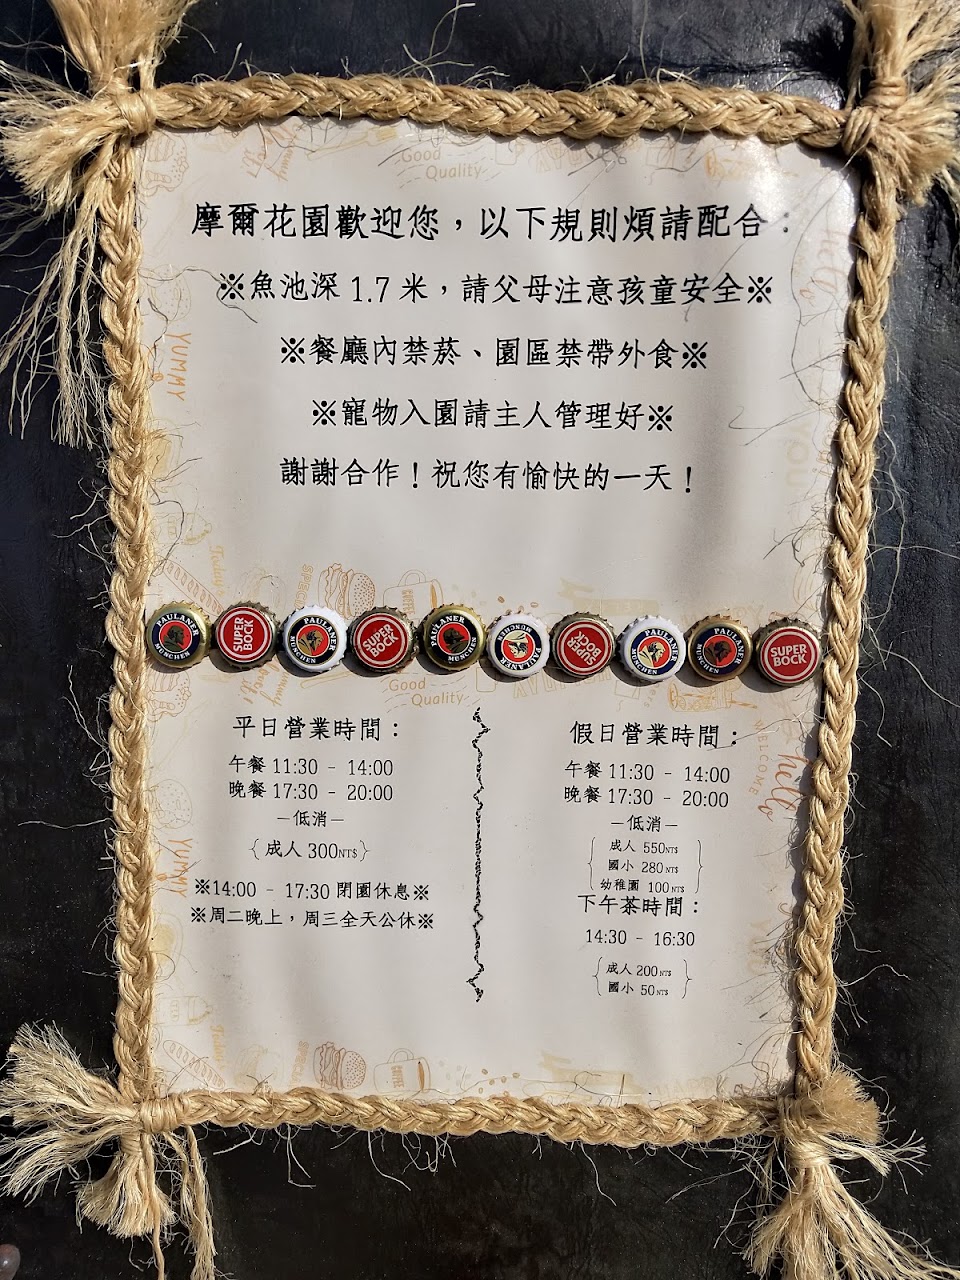 Good
Quality
摩爾花園歡迎您，以下規則煩請配合：
※魚池深 1.7 米，請父母注意孩童安全※
※餐廳內禁菸、園區禁帶外食※
YUMMY
※寵物入園請主人管理好※
謝謝合作！祝您有愉快的一天！
PAULANER MÜNCHEN
SUPER BOCK
PAULANER MÜNCHEN
SUPER BOCK
PAULANER MÜNCHEN
PAULANER MÜNCHEN
SUPER BOCK
PAULANER MÜNCHEN
PAULANER MÜNCHEN
SUPER BOCK
Good
Quality
平日營業時間：
午餐 11:30 - 14:00
晚餐 17:30 - 20:00
－低消－
{ 成人 300NT$ }
※14:00 - 17:30 閉園休息※
※周二晚上，周三全天公休※
假日營業時間：
午餐 11:30 - 14:00
晚餐 17:30 - 20:00
－低消－
成人 550NT$
國小 280NT$
幼稚園 100NT$
下午茶時間：
14:30 - 16:30
成人 200NT$
國小 50NT$
WELCOME
hello
YUMMY
COFFEE